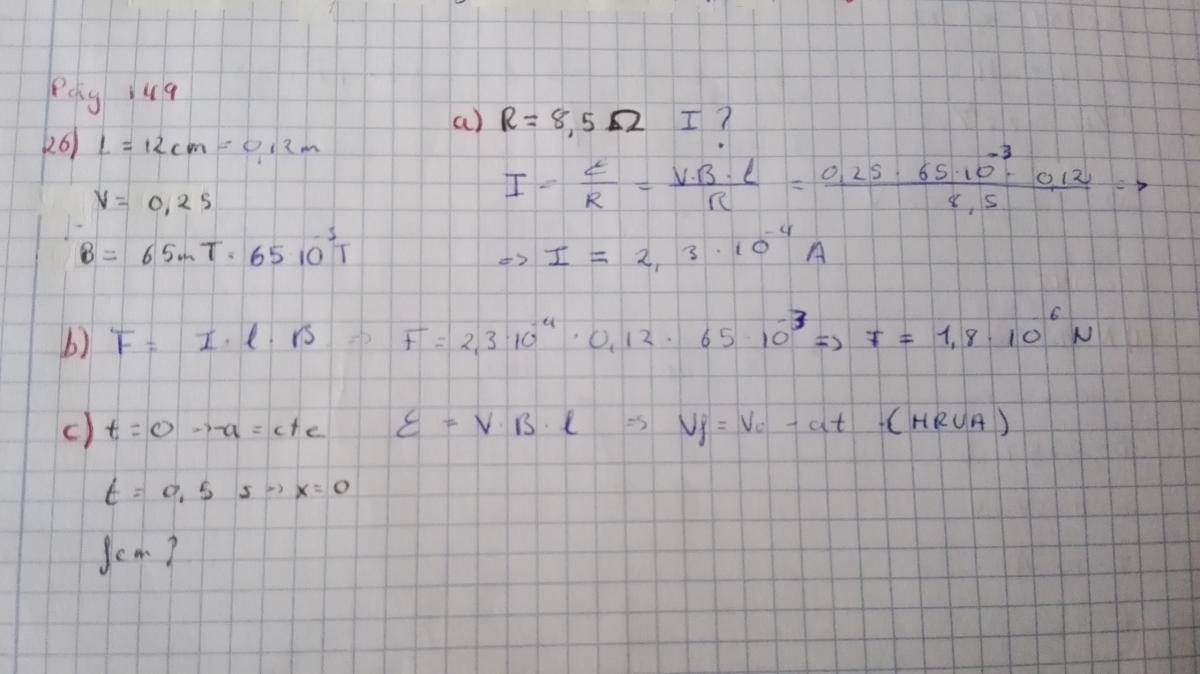 Pág 149
26) L = 12cm = 0,12m
V = 0,25
B = 65mT = 65·10⁻³T
a) R = 8,5 Ω I ?
I = ε/R = V·B·l/R = 0,25 · 65·10⁻³ · 0,12/8,5 =>
=> I = 2,3·10⁻⁴ A
b) F = I·l·B => F = 2,3·10⁻⁴ · 0,12 · 65·10⁻³ => F = 1,8·10⁻⁶ N
c) t=0 -> a = cte ε = V·B·l => Vf = Vo - at (MRUA)
t = 0,5 s -> x=0
fem ?